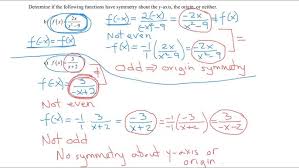 Determine if the following functions have symmetry about the y-axis, the origin, or neither.
f(x) = 2x/x²-9
f(-x) = 2(-x)/(-x)²-9 = -2x/x²-9 ≠ f(x)
f(-x) = f(x)
Not even
-f(x) = -1/1 (2x/x²-9) = -2x/x²-9
f(x) = 3/x+2
Odd ⇒ origin symmetry
f(-x) = 3/-x+2
Not even
-f(x) = -1/1 · 3/x+2 = -3/x+2 = -1/-1 (-3/x+2) = 3/-x-2
Not odd
No symmetry about y-axis or
origin